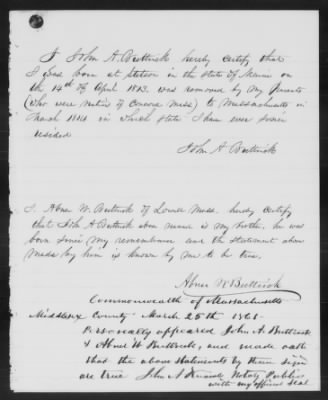 I John A. Buttrick hereby certify that
I was born at Stetson in the State of Maine on
the 14th of April 1813. was removed by my Parents
(who were natives of Concord Mass) to Massachusetts in
March 1814 in which State I have ever since
resided
John A Buttrick
I. Abner W. Buttrick of Lowell Mass. hereby certify
that John A Buttrick above named is my brother, he was
born since my remembrance and the statement above
made by him is known by me to be true.
Abner W Buttrick
Commonwealth of Massachusetts
Middlesex County March 25th 1861-
Personally appeared John A. Buttrick
& Abner W Buttrick, and made oath
that the above statements by them signed
are true John A Notary Public
with my official seal